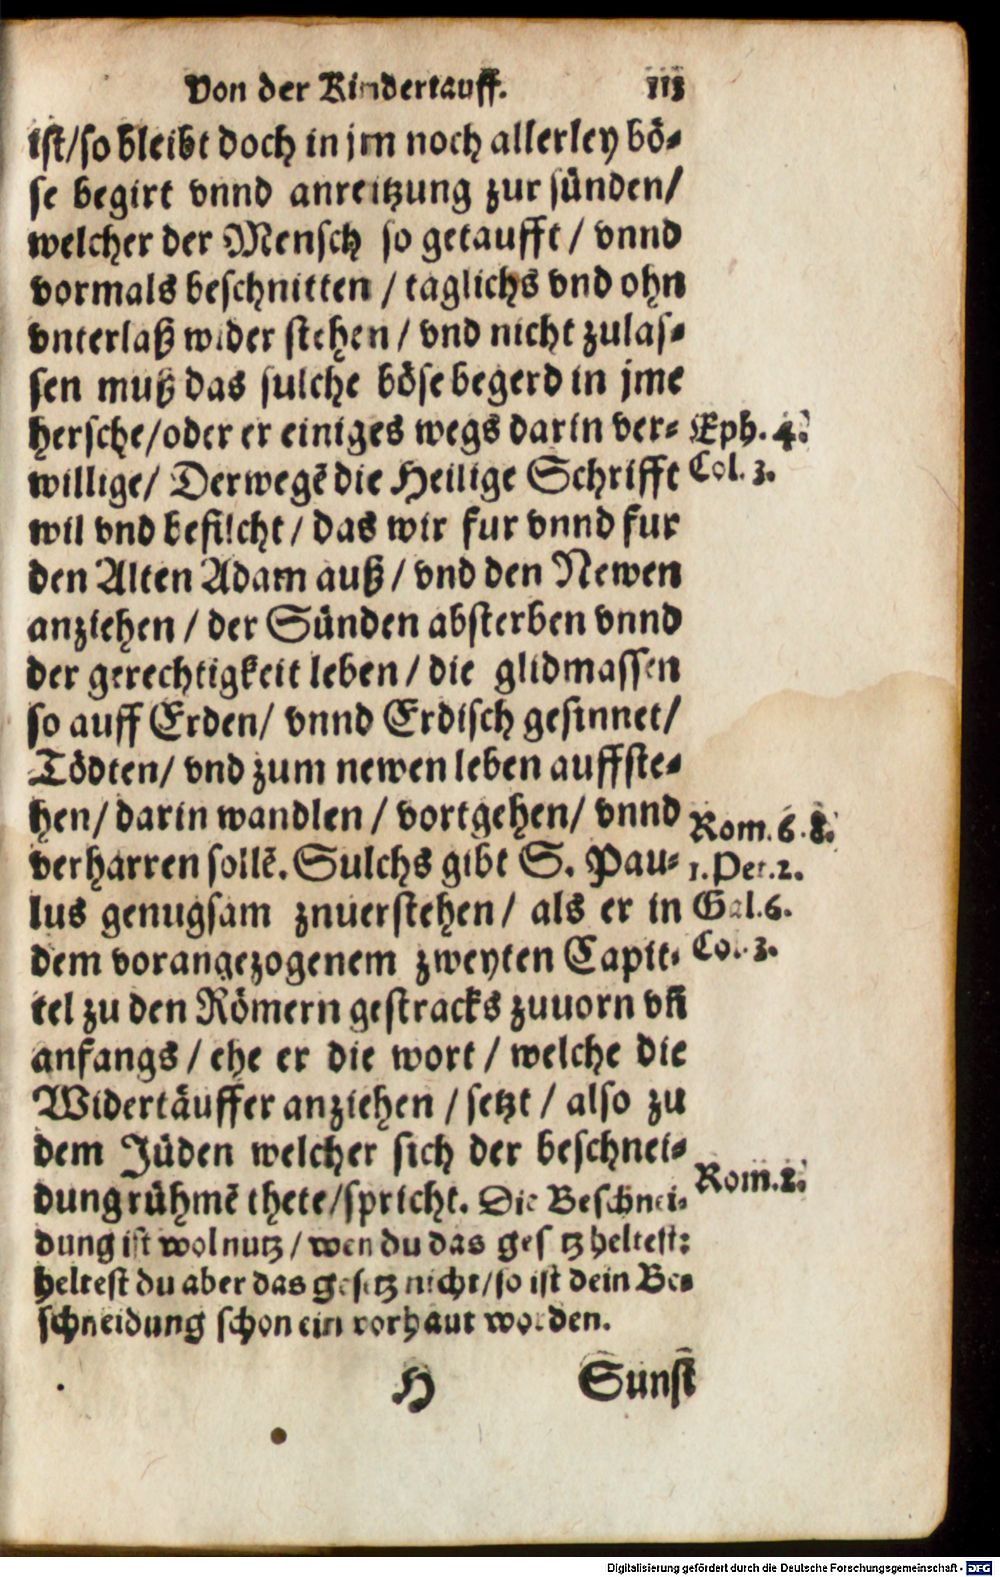 Von der Kindertauff. 113
ist/so bleibt doch in jm noch allerley bö-
se begirt vnnd anreitzung zur sünden/
welcher der Mensch so getaufft / vnnd
vormals beschnitten / taglichs vnd ohn
vnterlaß wider stehen / vnd nicht zulas-
sen muß das sulche böse begerd in jme
hersche/oder er einiges wegs darin ver-
Eph. 4.
willige/ Derwegē die Heilige Schrifft
Col. 3.
wil vnd befilcht / das wir fur vnnd fur
den Alten Adam auß / vnd den Newen
anziehen / der Sünden absterben vnnd
der gerechtigkeit leben / die glidmassen
so auff Erden/ vnnd Erdisch gesinnet/
Tödten/ vnd zum newen leben auffste-
hen/ darin wandlen / vortgehen/ vnnd
Rom. 6. 8.
verharren sollē. Sulchs gibt S. Pau-
1. Pet. 2.
lus genugsam znuerstehen/ als er in
Gal. 6.
dem vorangezogenem zweyten Capit-
Col. 3.
tel zu den Römern gestracks zuuorn vn̄
anfangs / ehe er die wort / welche die
Widertäuffer anziehen / setzt / also zu
dem Jüden welcher sich der beschnei-
Rom. 2.
dung rühmē thete/spricht. Die Beschnei-
dung ist wol nutz / wen du das gesetz heltest:
heltest du aber das gesetz nicht/so ist dein Be-
schneidung schon ein vorhaut worden.
H Sunst
Digitalisierung gefördert durch die Deutsche Forschungsgemeinschaft - DFG